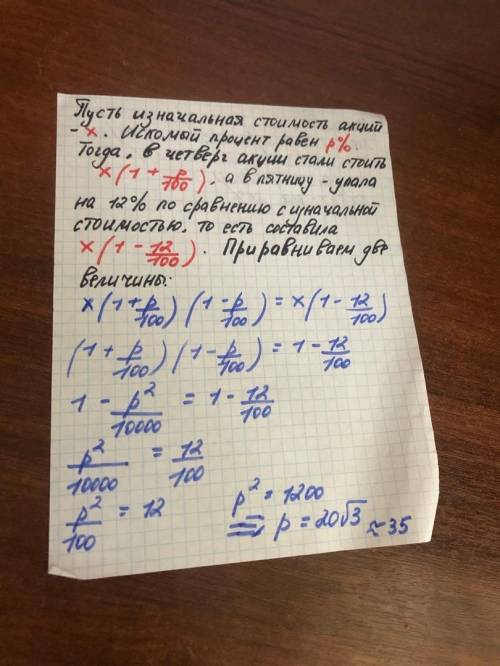 Пусть изначальная стоимость акций
- x. Искомый процент равен p%.
Тогда, в четверг акции стали стоить
x(1 + p/100), а в пятницу - упала
на 12% по сравнению с изначальной
стоимостью, то есть составила
x(1 - 12/100). Приравниваем две
величины:
x(1 + p/100)(1 - p/100) = x(1 - 12/100)
(1 + p/100)(1 - p/100) = 1 - 12/100
1 - p²/10000 = 1 - 12/100
p²/10000 = 12/100
p²/100 = 12
p² = 1200
=> p = 20√3 ≈ 35